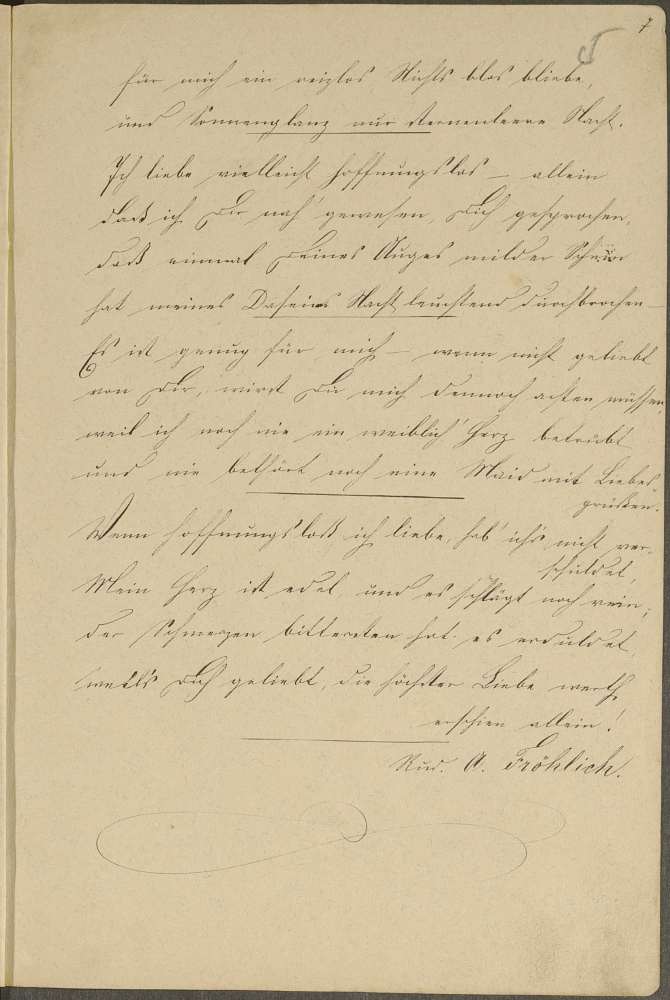 7
5
für mich ein reizlos Nichts blos bliebe,
und Sonnenglanz nur sternenleere Nacht.
Ich liebe vielleicht hoffnungslos – allein
daß ich Dir nah' gewesen, Dich gesprochen,
daß einmal Deines Auges milder Schein
hat meines Daseins Nacht leuchtend durchbrochen –
Es ist genug für mich – wenn nicht geliebt
von Dir, wirst Du mich dennoch achten müssen,
weil ich noch nie ein weiblich' Herz betrübt
und nie bethört noch eine Maid mit Liebes
grüssen.
Wenn hoffnungslos ich liebe, hab' ich's nicht ver-
schuldet,
Mein Herz ist edel, und es schlägt noch rein;
der Schmerzen bittersten hat es erduldet,
weil's Dich geliebt, die höchster Liebe werth
erschien allein!
Rud. A. Fröhlich.